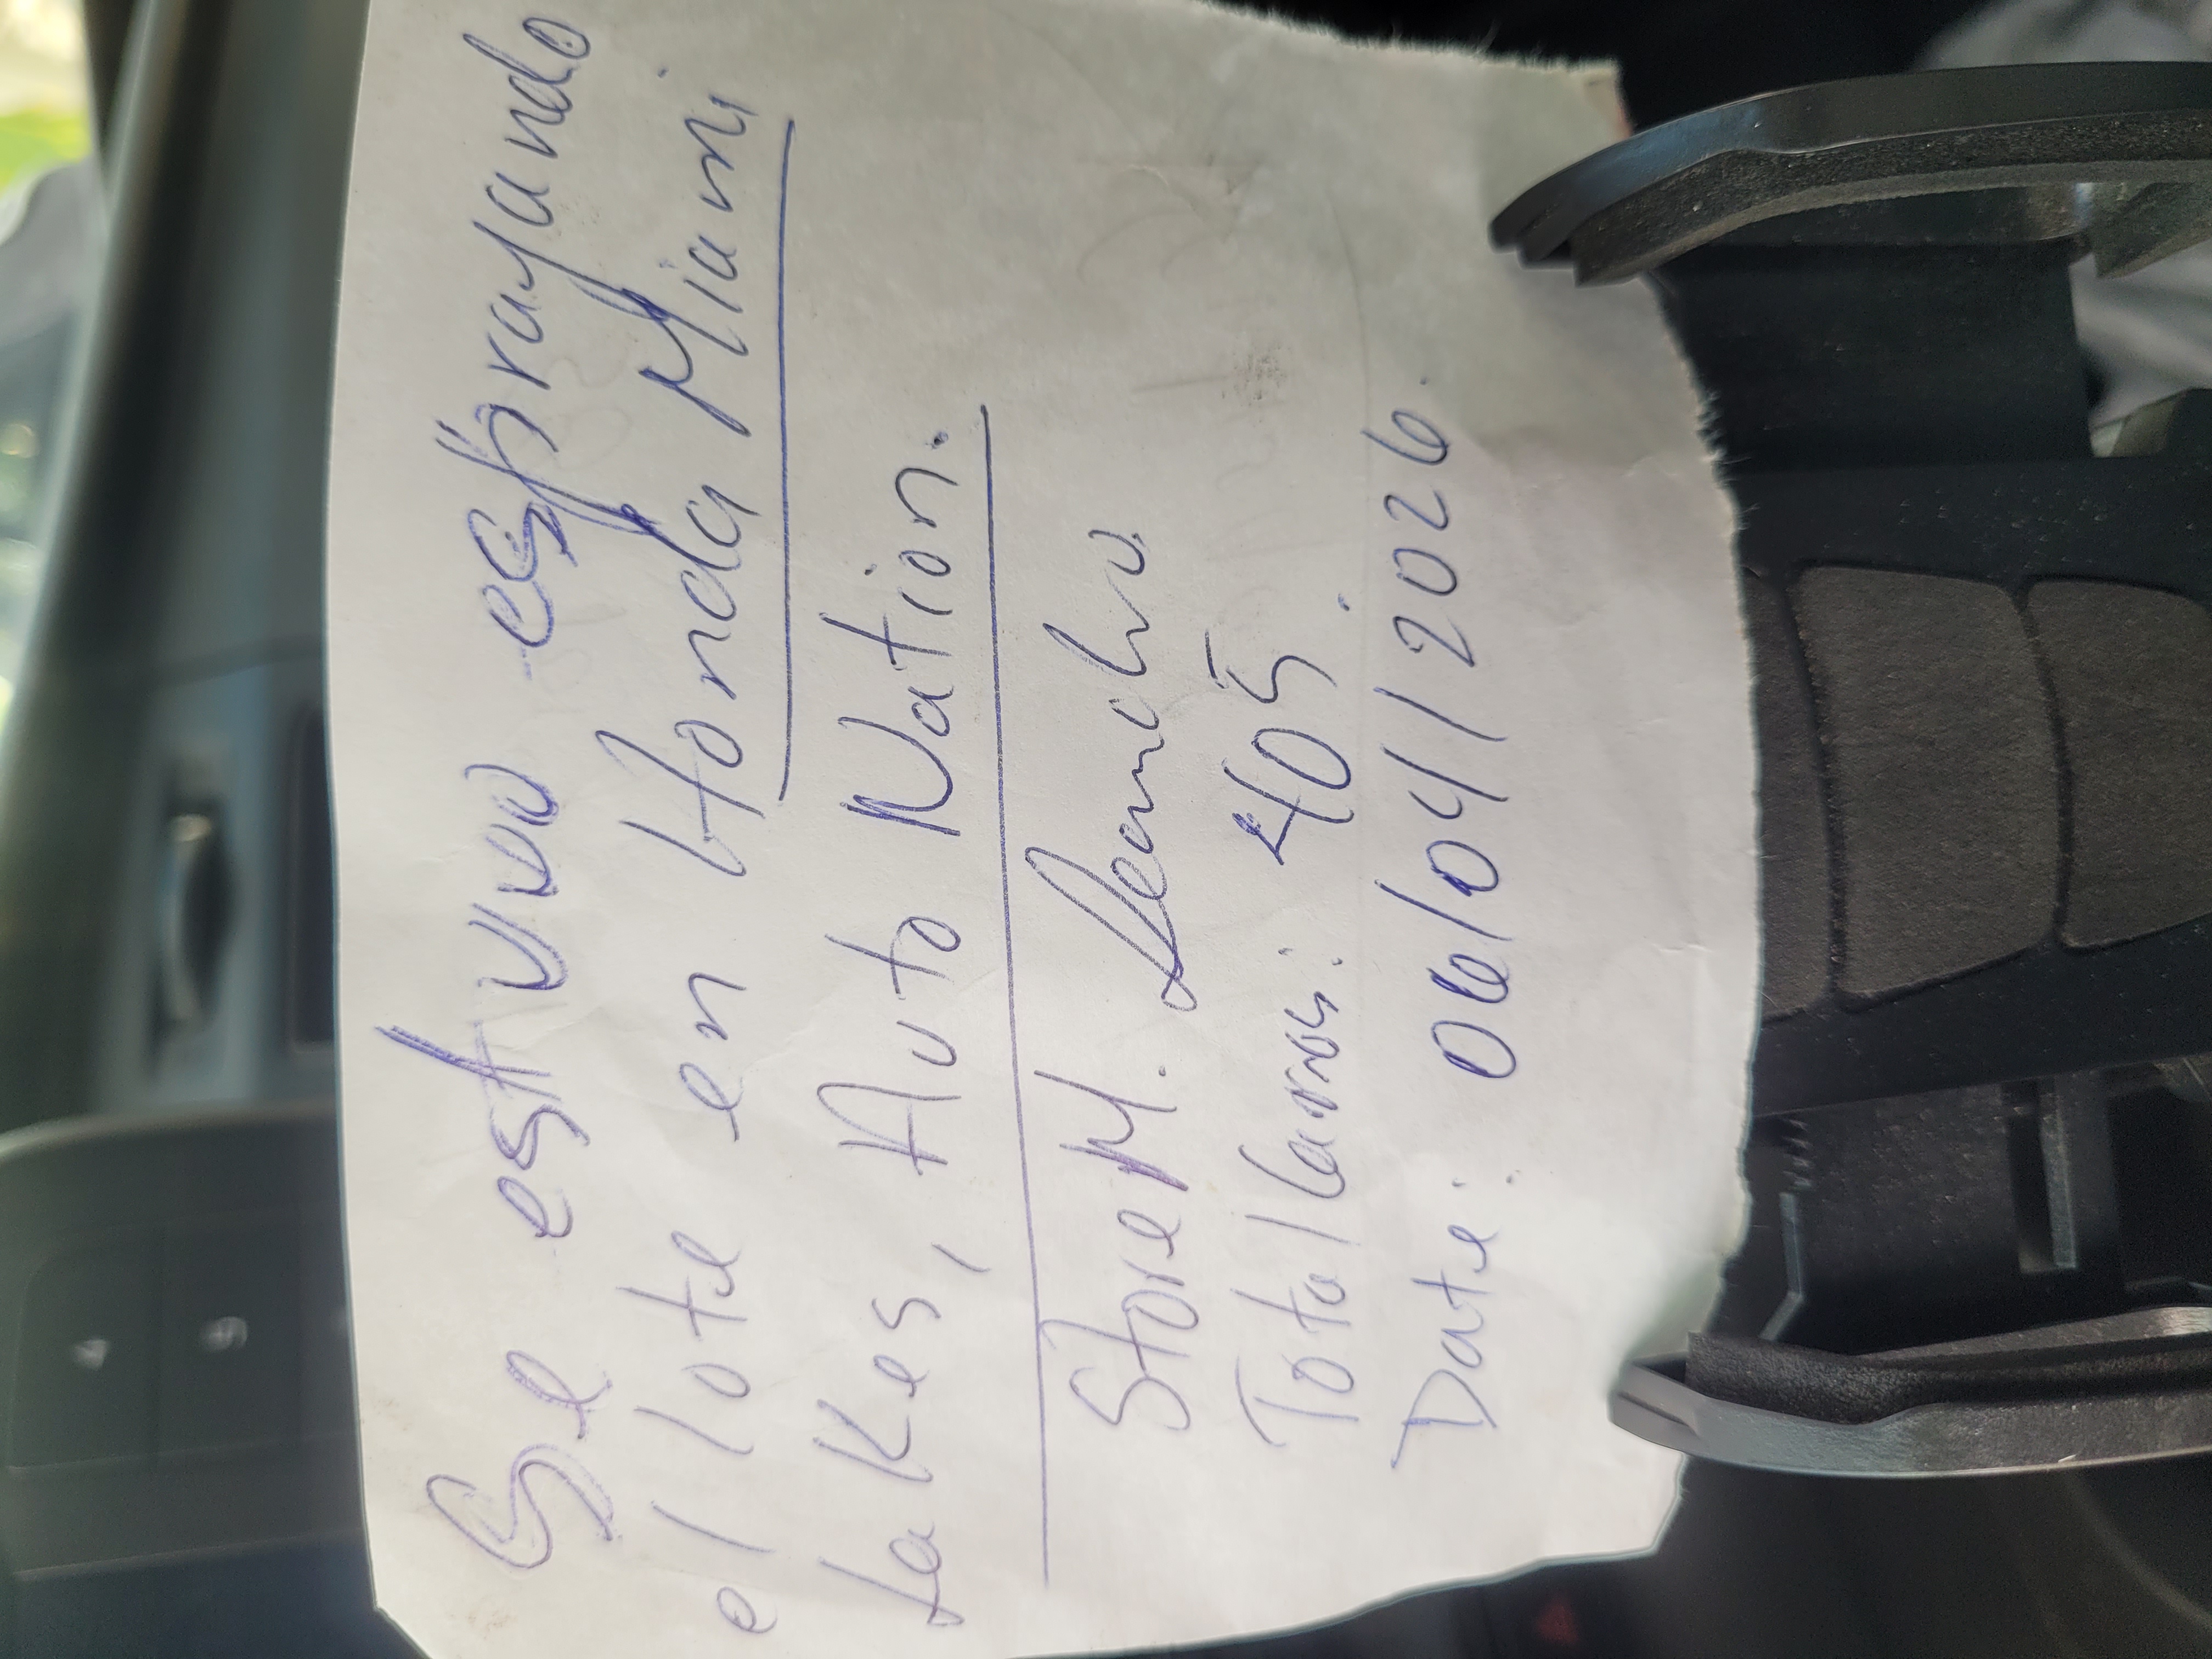 Se estuvo esprayando
el lote en Honda Miami
Lakes, Auto Nation.
Store M.
Total Carros: 405.
Date: 06/04/2026.
4
5